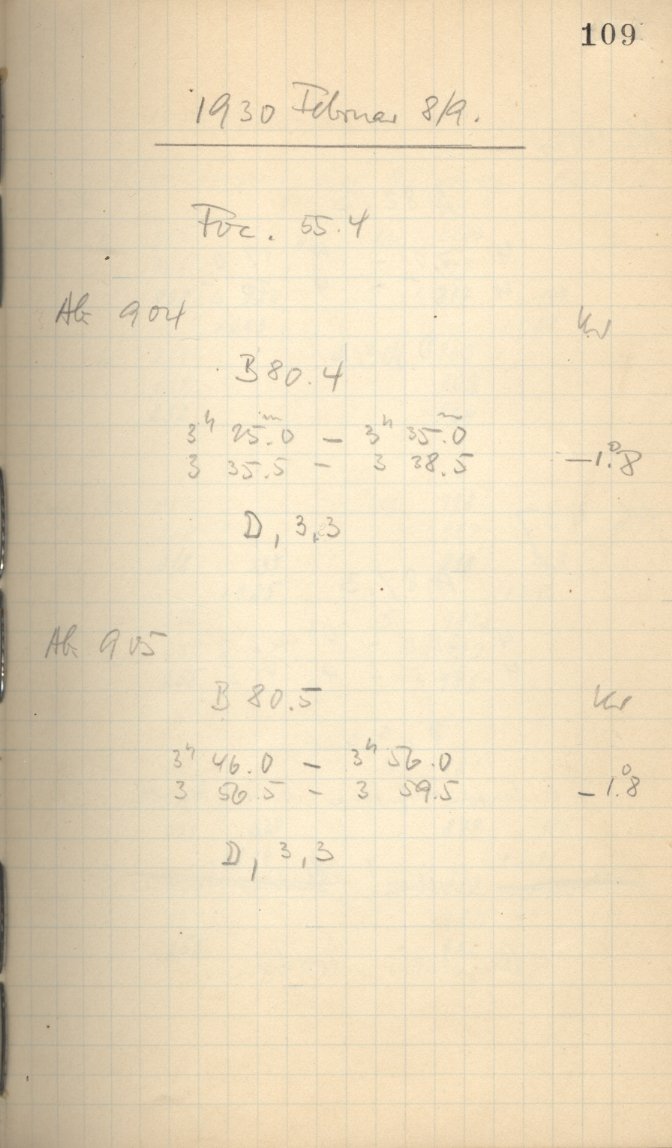 109
1930 Februar 8/9.
Foc. 55.4
Ab 904 Kr
B 80.4
3h 25.m0 – 3h 35.m0
3 35.5 – 3 38.5 –1.°8
D, 3,3
Ab 905
B 80.5 Kr
3h 46.0 – 3h 56.0
3 56.5 – 3 59.5 –1.°8
D, 3,3